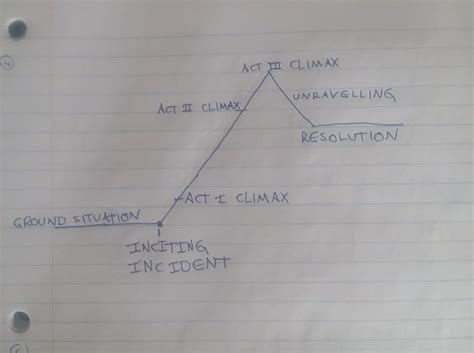 4
ACT III CLIMAX
UNRAVELLING
ACT II CLIMAX
RESOLUTION
ACT I CLIMAX
GROUND SITUATION
INCITING
INCIDENT